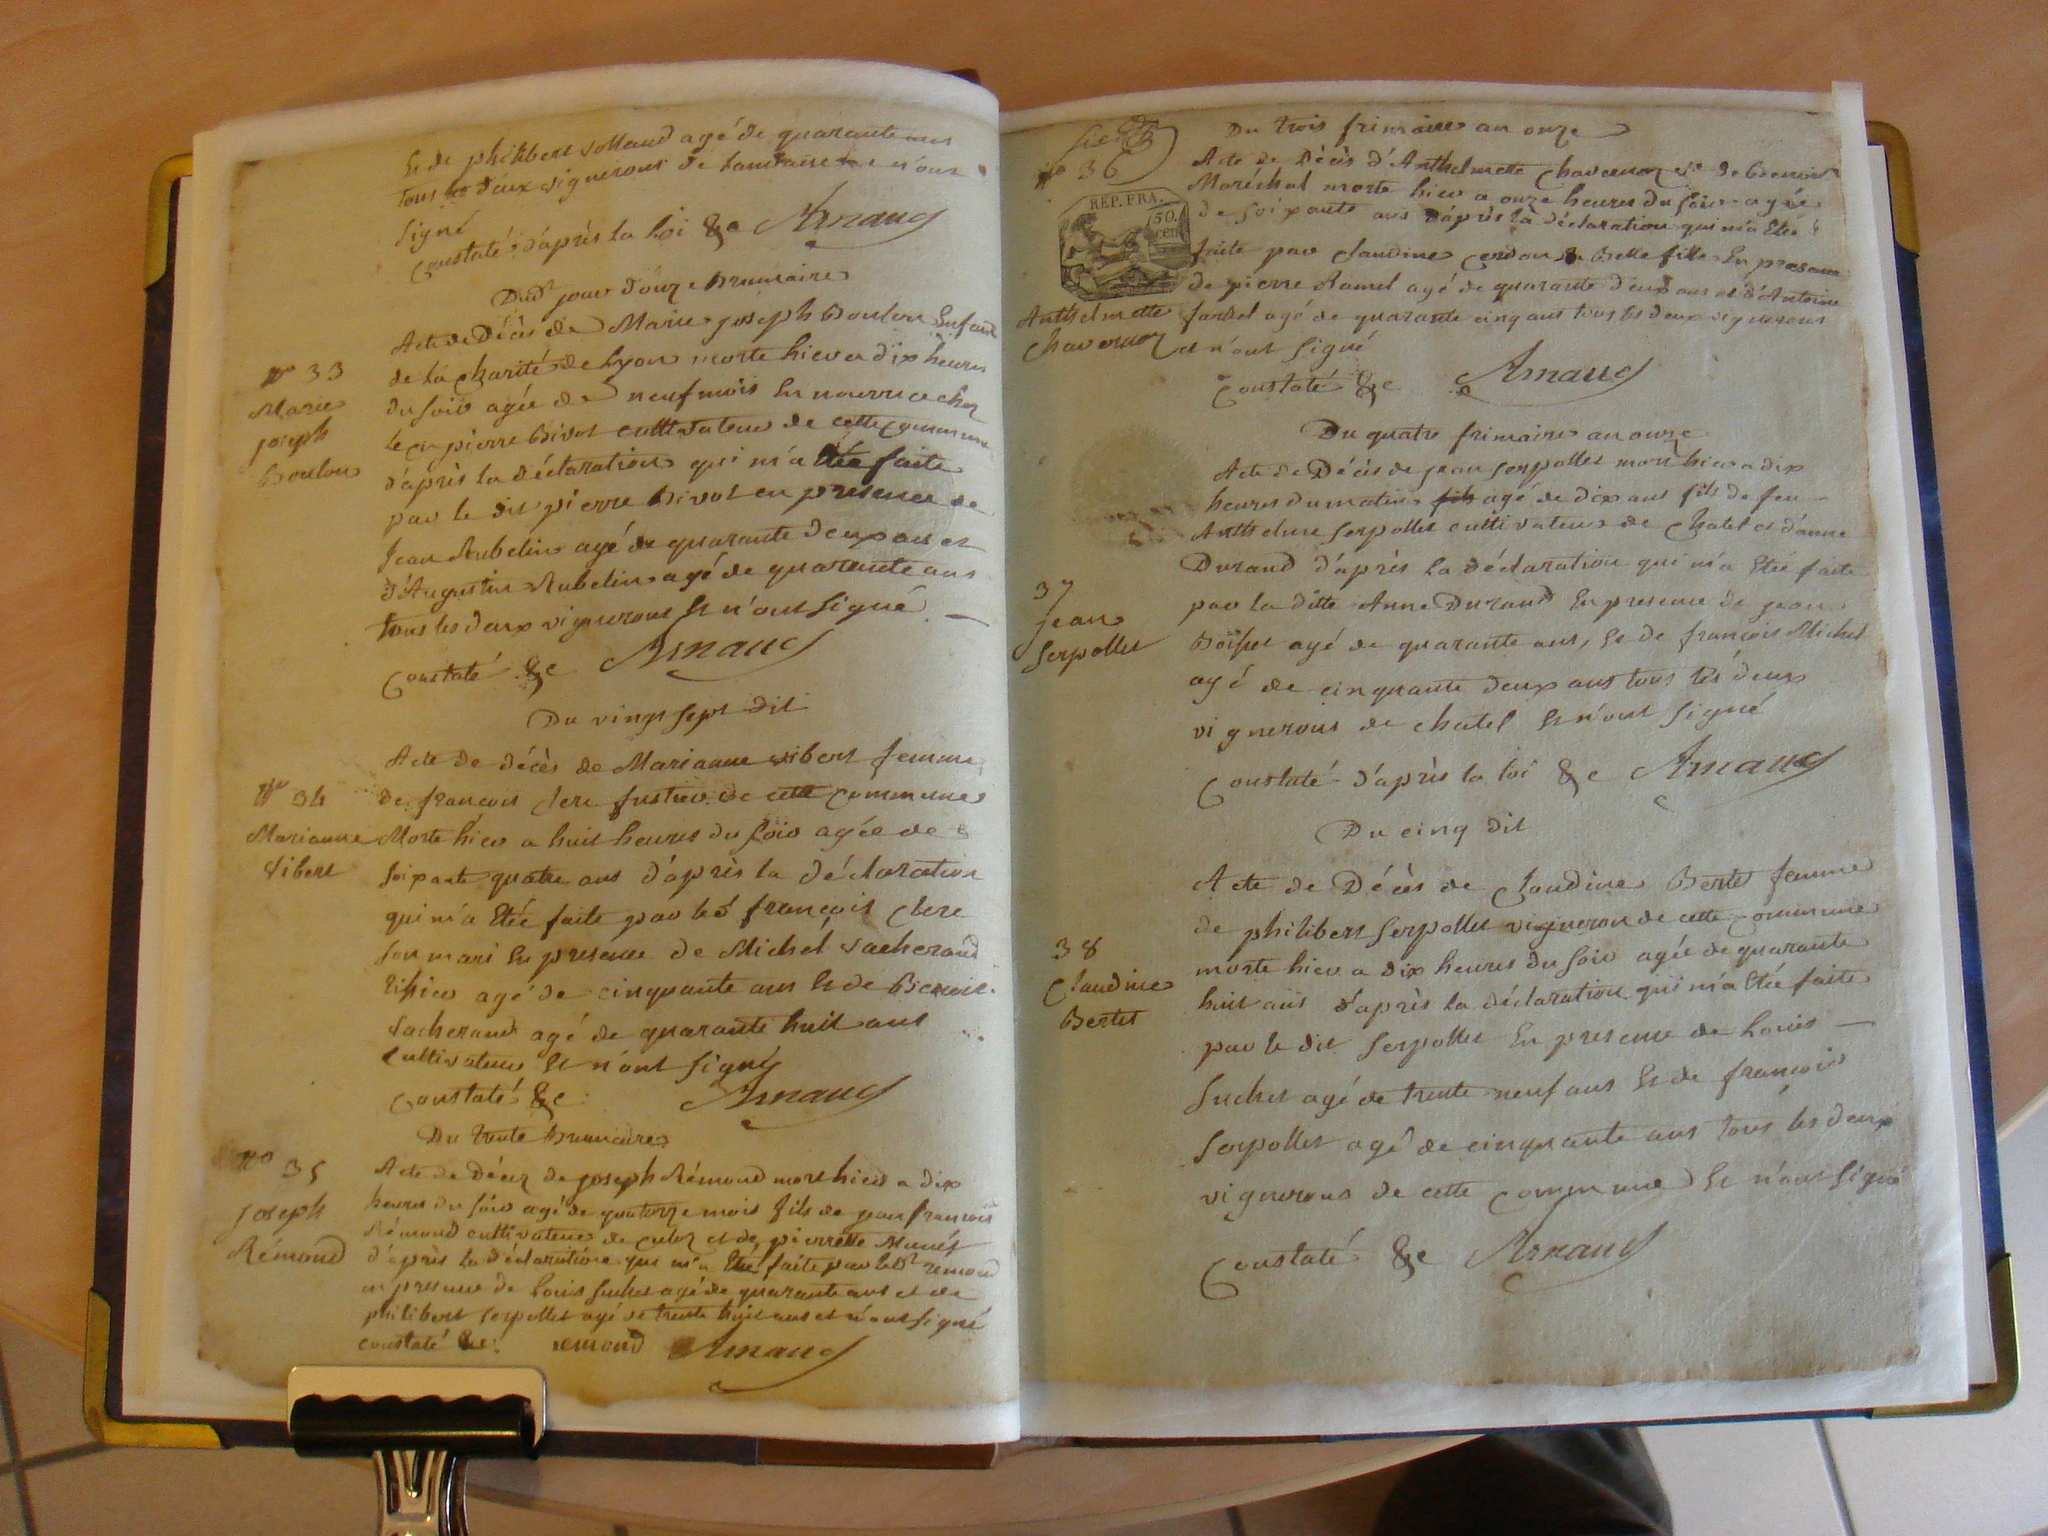 Et de philibert Volland agé de quarante ans
tous deux vignerons de et n'ont
signé
Constaté d'après la loi &c Arnaud
Dud' jour d'ouze Brumaire
N° 33
Marie
joseph
Boulon
Acte de Décès de Marie joseph Boulon Enfant
de la charité de Lyon morte hier a dix heures
du soir agée de neuf mois En nourrice chez
le cn pierre Bivot cultivateur de cette commune
d'après la déclaration qui m'a été faite
par le dit pierre Bivot en presence de
Jean Aubelin agé de quarante deux ans et
d'Augustin Aubelin agé de quarante ans
tous les deux vignerons Et n'ont signé
Constaté &c Arnaud
Du vingt sept dit
N° 34
Marianne
Vibert
Acte de décès de Marianne Vibert femme
de françois Clerc de cette commune
Morte hier a huit heures du soir agée de
soixante quatre ans d'après la déclaration
qui m'a Eté faite par led françois Clerc
son mari En presence de Michel Vacherand
agé de cinquante ans Et de Benoit
Vacherand agé de quarante huit ans
Cultivateurs Et n'ont signé
Constaté &c Arnaud
Du trente Brumaire
N° 35
joseph
Rémond
Acte de Décez de joseph Rémond mort hier a dix
heures du soir agé de quatorze mois fils de jean françois
Rémond cultivateur de culoz et de pierrette
d'après la déclaration qui m'a Eté faite par led' remond
en presence de Louis Suchet agé de quarante ans et de
philibert Serpollet agé de trente huit ans et n'ont signé
constaté &c. remond Arnaud
Du trois frimaire an onze
N° 36
REP. FRA.
50.
cen
Anthelmette
Chavernoz
Acte de Décès d'Anthelmette Chavernoz ve de Benoit
Maréchal morte hier a onze heures du soir agée
de soixante ans d'après la déclaration qui m'a Eté
faite par Claudine Cerdon sa Belle fille En presence
de pierre Ramel agé de quarante deux ans et d'Antoine
fardel agé de quarante cinq ans tous les deux vignerons
et n'ont signé
Constaté &c Arnaud
Du quatre frimaire an onze
37
jean
Serpollet
Acte de Décès de jean Serpollet mort hier a dix
heures du matin fils agé de dix ans fils de feu
Anthelme Serpollet cultivateur de Chatel et d'anne
Durand d'après la déclaration qui m'a Eté faite
par la ditte Anne Durand En presence de jean
agé de quarante ans, Et de françois Michel
agé de cinquante deux ans tous les deux
vignerons de chatel Et n'ont signé
Constaté d'après la loi &c Arnaud
Du cinq dit
38
Claudine
Bertet
Acte de Décès de Claudine Bertet femme
de philibert Serpollet vigneron de cette commune
morte hier a dix heures du soir agée de quarante
huit ans d'après la déclaration qui m'a Eté faite
par le dit Serpollet En presence de Louis
Suchet agé de trente neuf ans Et de françois
Serpollet agé de cinquante ans tous les deux
vignerons de cette commune Et n'ont signé
Constaté &c Arnaud